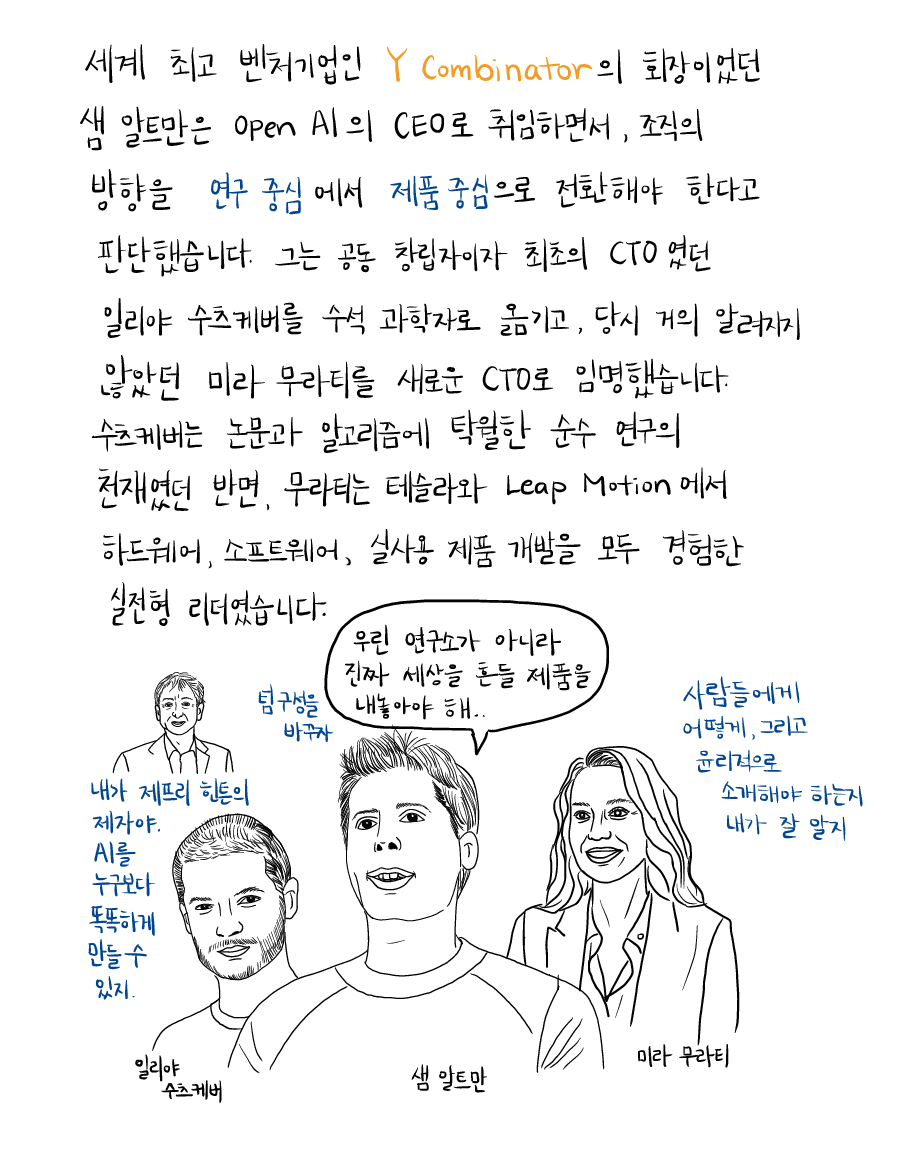 세계 최고 벤처기업인 Y Combinator의 회장이었던
샘 알트만은 Open AI의 CEO로 취임하면서, 조직의
방향을 연구 중심에서 제품 중심으로 전환해야 한다고
판단했습니다. 그는 공동 창립자이자 최초의 CTO였던
일리야 수츠케버를 수석 과학자로 옮기고, 당시 거의 알려지지
않았던 미라 무라티를 새로운 CTO로 임명했습니다.
수츠케버는 논문과 알고리즘에 탁월한 순수 연구의
천재였던 반면, 무라티는 테슬라와 Leap Motion에서
하드웨어, 소프트웨어, 실사용 제품 개발을 모두 경험한
실전형 리더였습니다.
우린 연구소가 아니라
진짜 세상을 흔들 제품을
내놓아야 해..
팀구성을
바꾸자
사람들에게
어떻게, 그리고
윤리적으로
소개해야 하는지
내가 잘 알지
내가 제프리 힌튼의
제자야.
AI를
누구보다
똑똑하게
만들 수
있지.
일리야
수츠케버
샘 알트만
미라 무라티